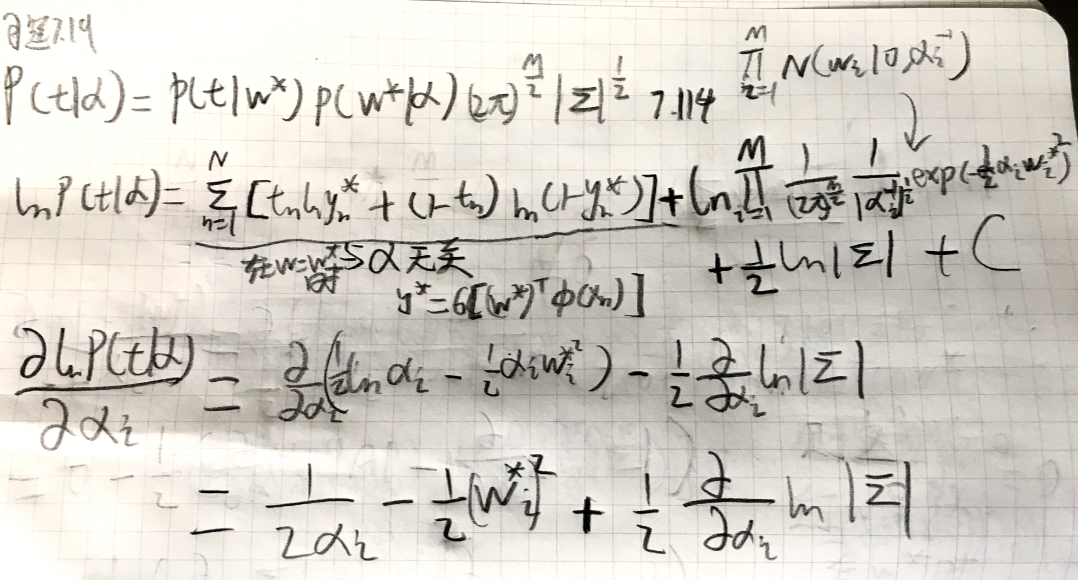 习题7.19
P(t|α) = p(t|w*) p(w*|α) (2π)^{M/2} |Σ|^{1/2} 7.114 ∏_{i=1}^{M} N(w_i|0,α_i^{-1})
ln P(t|α) = Σ_{n=1}^{N} [t_n ln y_n^* + (1-t_n) ln (1-y_n^*)] + ln ∏_{i=1}^{M} 1/(2π)^{m/2} 1/|α_i^{-1}|^{1/2} exp(-1/2 α_i w_i^{*2})
在w=w*时与α无关 + 1/2 ln|Σ| + C
y* = σ[(w*)^T φ(x_n)]
∂lnP(t|α)/∂α_i = ∂/∂α_i (1/2 ln α_i - 1/2 α_i w_i^{*2}) - 1/2 ∂/∂α_i ln|Σ|
= 1/(2α_i) - 1/2 (w_i^*)^2 + 1/2 ∂/∂α_i ln |Σ|